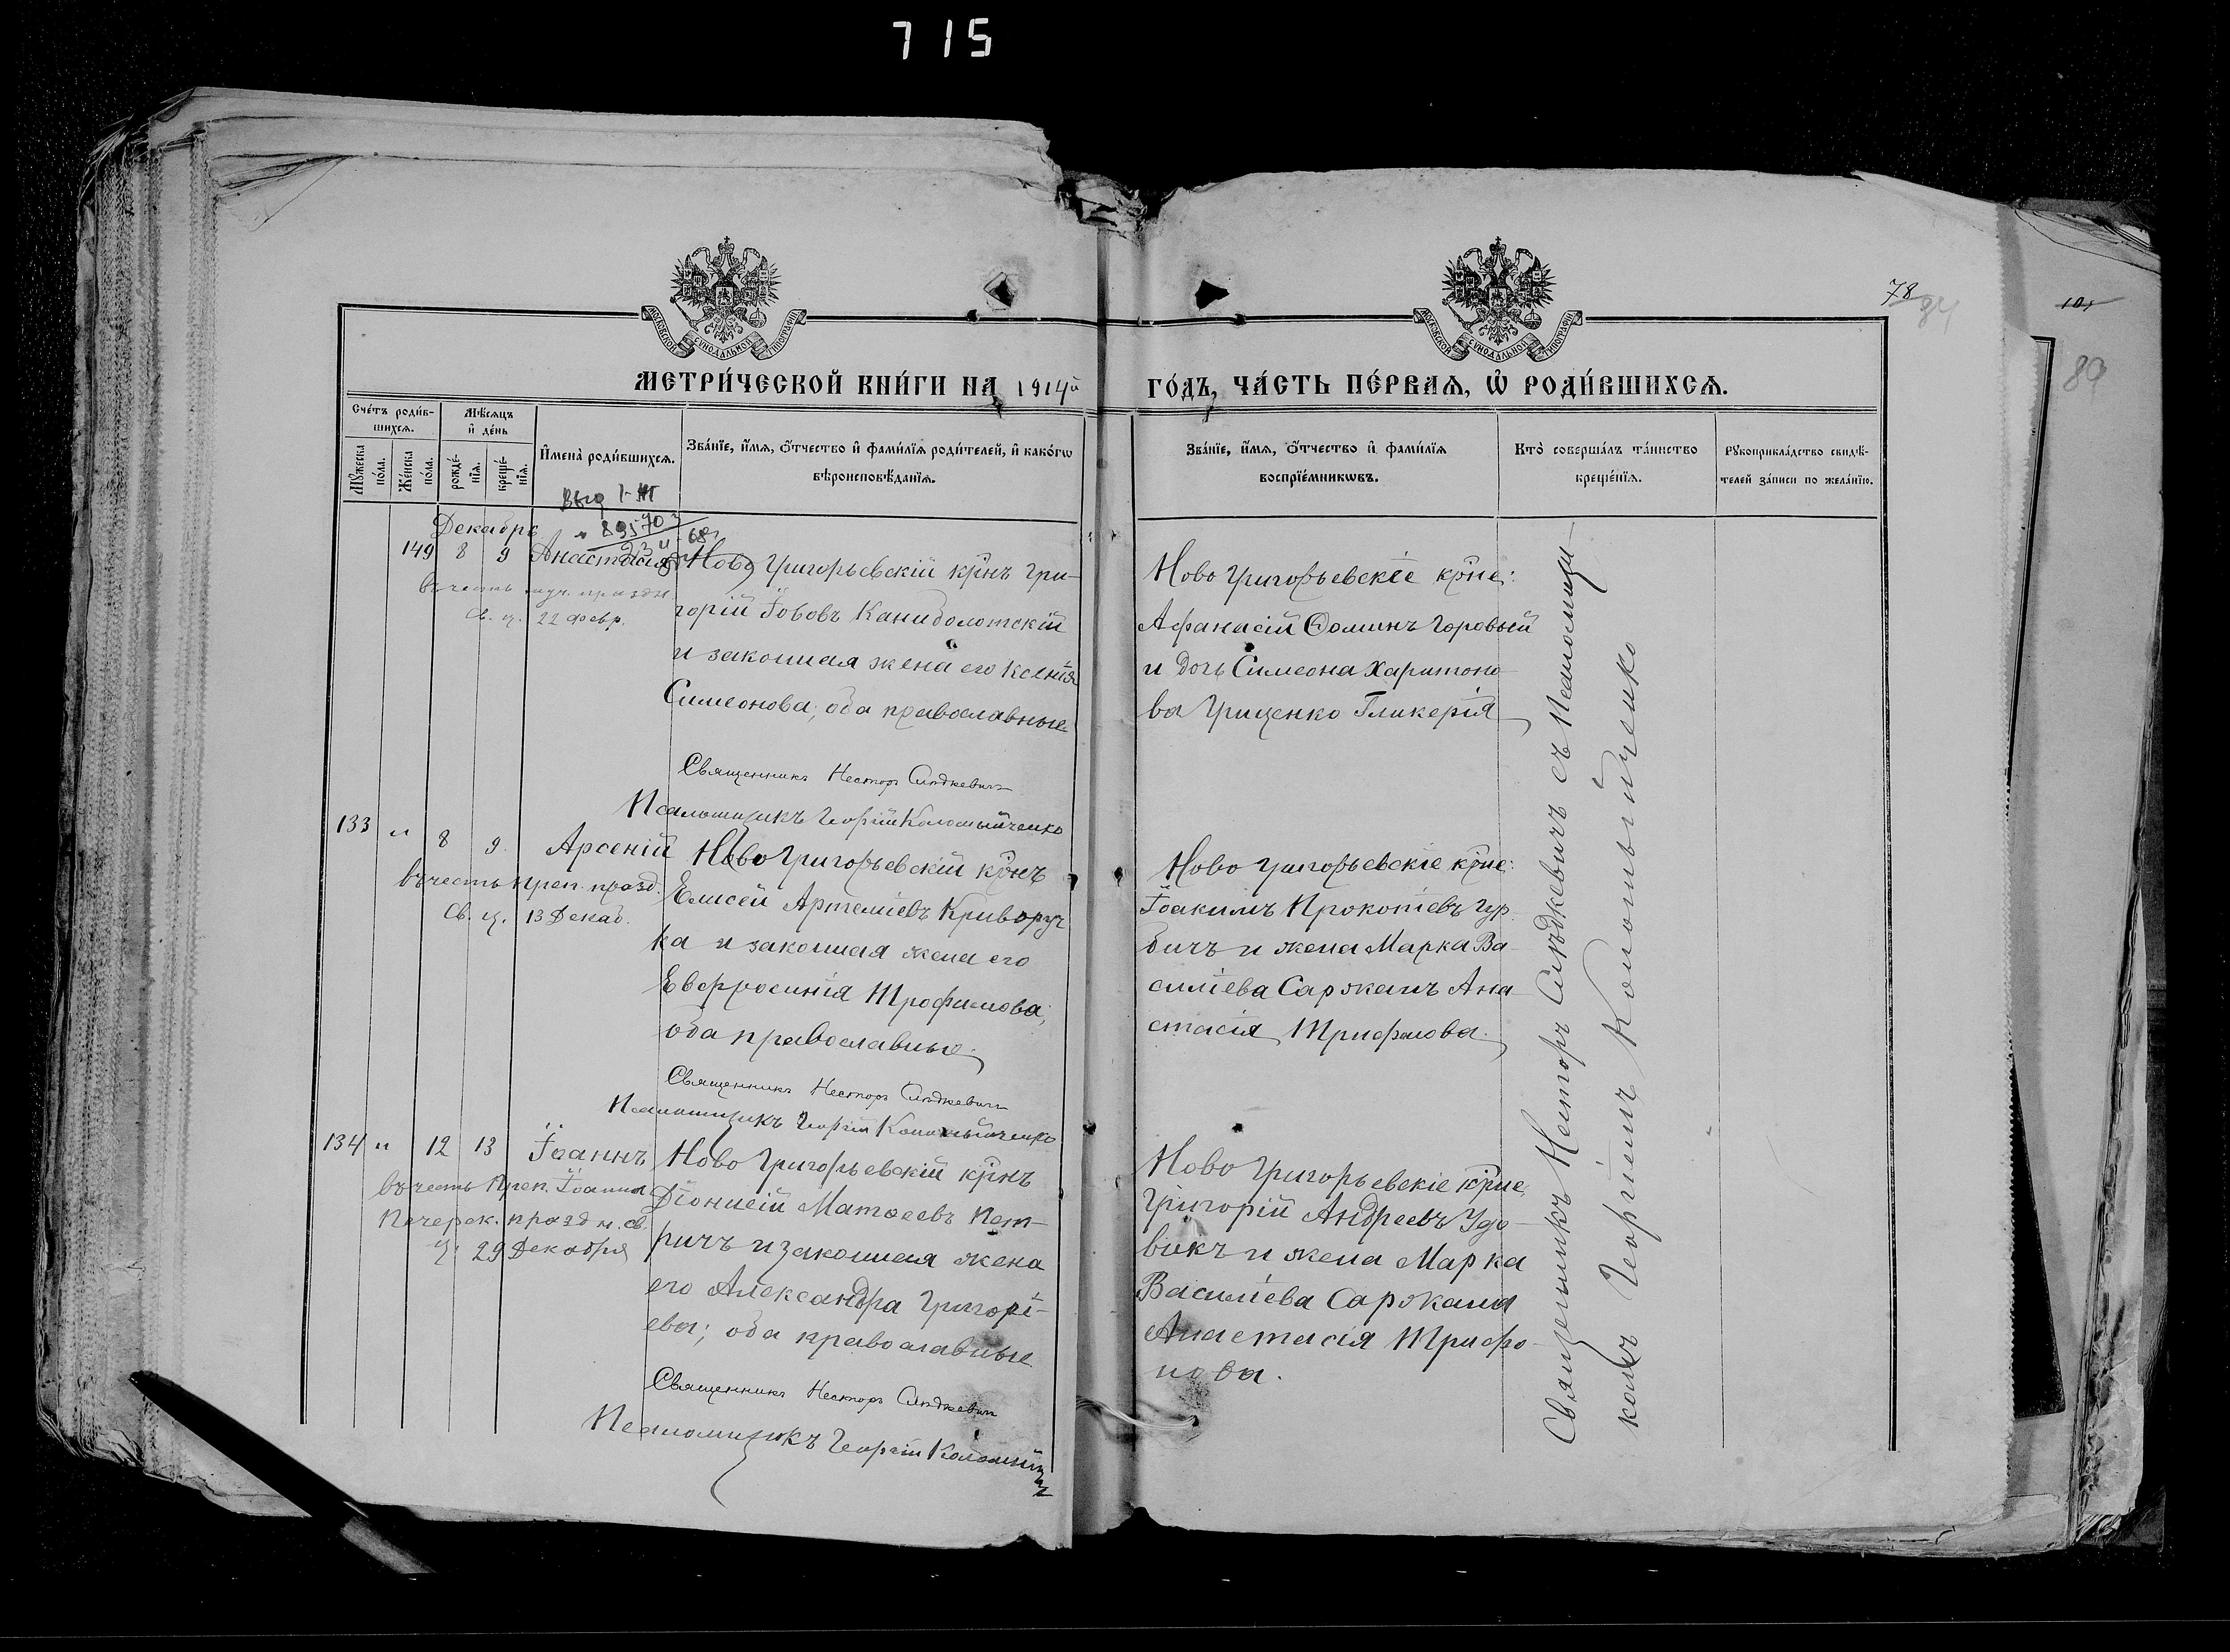 715
МОСКОВСКОЙ СѴНОДАЛЬНОЙ ТИПОГРАФІИ
МОСКОВСКОЙ СѴНОДАЛЬНОЙ ТИПОГРАФІИ
78
84
101
89
МЕТРИ́ЧЕСКОЙ КНИ́ГИ НА 1914й ГО́ДЪ, ЧА́СТЬ ПЕ́РВАЯ, Ѡ҆ РОДИ́ВШИХСѦ.
Сче́тъ роди́в-
шихсѧ.
Мꙋ́жеска
по́ла.
Же́нска
по́ла.
Мѣ́сѧцъ
и҆ де́нь
рожде́-
нїѧ.
креще́-
нїѧ.
И҆мена̀ роди́вшихсѧ.
Зва́нїе, и҆́мѧ, ѻ҆́тчество и҆ фами́лїѧ роди́телей, и҆ како́гѡ
вѣроисповѣ́данїѧ.
Зва́нїе, и҆́мѧ, ѻ҆́тчество и҆ фами́лїѧ
воспрїе́мникѡвъ.
Кто̀ соверша́лъ та́инство
креще́нїѧ.
Рꙋкоприкла́дство свидѣ́-
телей за́писи по жела́нїю.
Декабрь
149 8 9 Анастасія
въ честь муч. праздн
св. ц. 22 февр.
Ново Григорьевскій крнъ Гри-
горій Іововъ Каниболотскій
и законная жена его Ксенія
Симеонова; оба православные
Священникъ Несторъ Слѣдкевичъ
Псаломщикъ Георгій Коломыйченко
Ново Григорьевскіе крне:
Афанасій Ѳоминъ Горовый
и дочь Симеона Харитоно-
ва Гриценко Гликерія
133 " 8 9 Арсеній
въ честь преп. празд.
св. ц. 13 Декаб.
Ново Григорьевскій крнъ
Елисей Артеміевъ Криворуч
ка и законная жена его
Евфросинія Трофимова;
оба православные.
Священникъ Несторъ Слѣдкевичъ
Псаломщикъ Георгій Коломыйченко
Ново Григорьевскіе крне:
Іоакимъ Прокопіевъ Гур
бичъ и жена Марка Ва-
силіева Саржанъ Ана-
стасія Трифонова.
134 " 12 13 Іоаннъ
въ честь Преп. Іоанна
Печерск. празд н. св.
ц. 29 Декабря
Ново Григорьевскій крнъ
Діонисій Матѳеевъ Пет-
ричъ и законная жена
его Александра Григорі-
ева; оба православные
Священникъ Несторъ Слѣдкевичъ
Псаломщикъ Георгій
Ново Григорьевскіе крне
Григорій Андреевъ Удо-
викъ и жена Марка
Василіева Саржана
Анастасія Трифо-
нова.
Священникъ Несторъ Слѣдкевичъ съ Псаломщи-
комъ Георгіемъ Коломыйченко